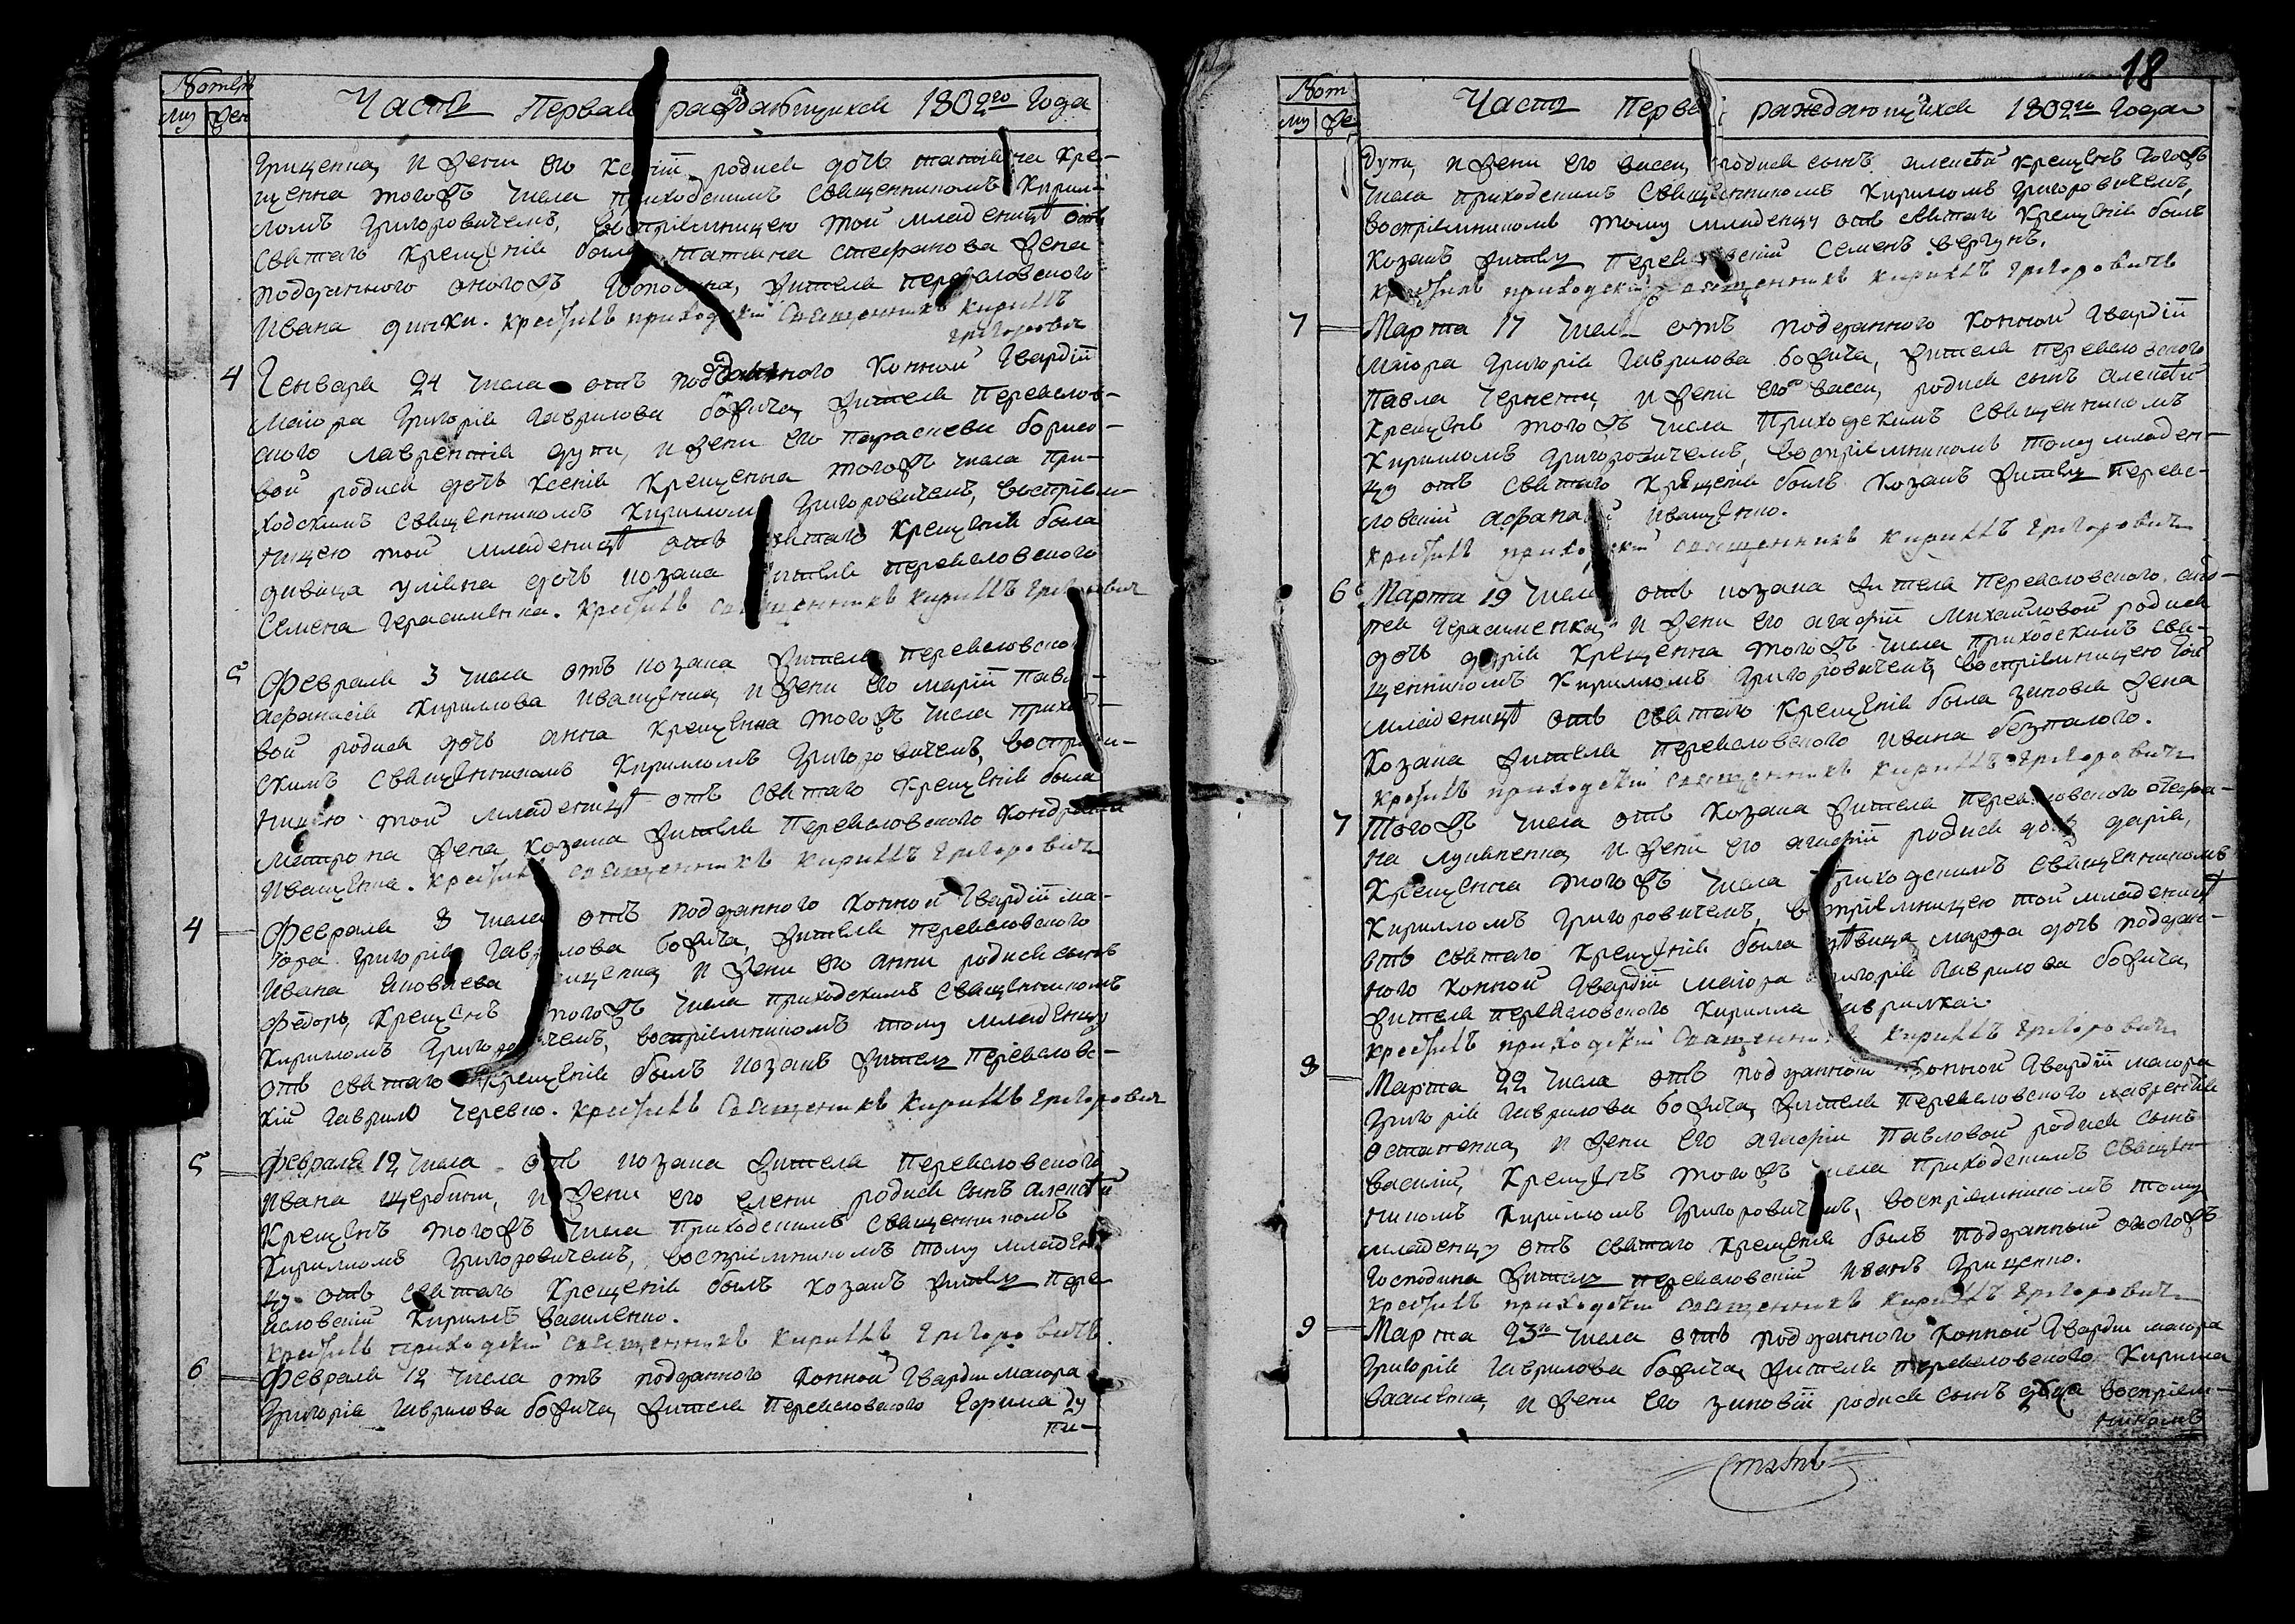 Часть Первая раждающихся 1802го Года
Грищенка, и жени его Ксенїи родися дочь татїяна кре-
щенна тогожъ числа приходскимъ священникомъ Кирил-
ломъ Григоровичемъ, воспрїемницею той младеницѣ отъ
святаго крещенїя была татїяна стефанова жена
подданного оногожъ Господина, жителя переяловского
Ивана дички. крестилъ приходскїй священникъ кириллъ
григоровичъ
4 Генваря 24 числа отъ подданного Конной Гвардїи
маїора Григорїя Гаврилова божича, жителя переялов-
ского лаврентїя дупи, и жени его параскеви борисо-
вой родися дочь ксенїя крещенна тогожъ числа при-
ходскимъ священникомъ Кирилломъ Григоровичемъ, воспрїем-
ницею той младеницѣ отъ святаго крещенїя была
дивица улїяна дочь козака жителя переяловского
Семена Герасименка. крестилъ священникъ кириллъ григорович
5 Февраля 3 числа отъ козака жителя переяловского
афанасїя Кириллова Иващенка, и жени его марїи Павло-
вой родися дочь анна крещенна тогожъ числа приход-
скимъ священникомъ Кирилломъ Григоровичемъ, воспрїем-
ницею той младеницѣ отъ святаго крещенїя была
матрона жена козака жителя переяловского Кондратия
Иващенка. крестилъ священникъ кириллъ григоровичъ
4 Февраля 8 числа отъ подданного конной Гвардїи ма-
їора Григорїя Гаврилова божича, жителя переяловского
Ивана Яковлева Грищенка, и жени его анни родися сынъ
федоръ, крещенъ тогожъ числа приходскимъ священникомъ
Кирилломъ Григоровичемъ, воспрїемникомъ тому младенцу
отъ святаго крещенїя былъ козакъ житель переяловс-
кїй Гаврило Черевко. крестилъ священникъ кириллъ григорович
5 Февраля 12 числа отъ козака жителя переяловского
Ивана щербини, и жени его елени родися сынъ алексѣй
крещенъ тогожъ числа приходскимъ священникомъ
Кирилломъ Григоровичемъ, воспрїемникомъ тому младен-
цу отъ святаго крещенїя былъ козакъ житель перея-
ясловскїй Кирилъ Василенко.
крестилъ приходскїй священникъ кириллъ григоровичъ.
6 Февраля 12 числа отъ подданного конной Гвардїи маїора
Григорїя Гаврилова божича, жителя переяловского Ефрима Ду
пи-
18
Часть Первая раждающихся 1802го Года
дупи, и жени его васси, родися сынъ алексѣй крещенъ тогожъ
числа приходскимъ священникомъ Кирилломъ Григоровичемъ,
воспрїемникомъ тому младенцу отъ святаго крещенїя былъ
козакъ житель переяловскїй Семенъ Вергунъ.
крестилъ приходскїй священникъ кириллъ григоровичъ
7 Марта 17 числа отъ подданного конной Гвардїи
маїора Григорїя Гаврилова божича, жителя переяловского
Павла Чернети, и жени его васси, родися сынъ алексѣй
крещенъ тогожъ числа приходскимъ священникомъ
Кирилломъ Григоровичемъ, воспрїемникомъ тому младен-
цу отъ святаго крещенїя былъ козакъ житель переяс-
ловскїй афанасїй Иващенко.
крестилъ приходскїй священникъ кириллъ григоровичъ
6 Марта 19 числа отъ козака жителя переяловского анд-
рея Герасименка, и жени его агафїи Михайловой родися
дочь дарїя крещенна тогожъ числа приходскимъ свя-
щенникомъ Кирилломъ Григоровичемъ, воспрїемницею той
младеницѣ отъ святаго крещенїя была зиновїя жена
козака жителя переяловского Ивана безталого.
крестилъ приходскїй священникъ кириллъ григоровичъ
7 Тогожъ числа отъ козака жителя переяловского стефа-
на Лукяненка, и жени его агафїи родися дочь дарїя,
крещенна тогожъ числа приходскимъ священникомъ
Кирилломъ Григоровичемъ, воспрїемницею той младеницѣ
отъ святаго крещенїя была дѣвица марфа дочь поддан-
ного конной Гвардїи маїора Григорїя Гаврилова божича,
жителя переяловского Кирилла Гаврилка.
крестилъ приходскїй священникъ кириллъ григоровичъ
8 Марта 22 числа отъ подданного конной Гвардїи маїора
Григорїя Гаврилова божича, жителя переяловского лаврентїя
остапенка, и жени его агафїи Павловой родися сынъ
василїй, крещенъ тогожъ числа приходскимъ священ-
никомъ Кирилломъ Григоровичемъ, воспрїемникомъ тому
младенцу отъ святаго крещенїя былъ подданный оногожъ
Господина житель переяловскїй Иванъ Грищенко.
крестилъ приходскїй священникъ кириллъ григоровичъ
9 Марта 23го числа отъ подданного конной Гвардїи маїора
Григорїя Гаврилова божича, жителя переяловского Кирилла
Василенка, и жени его зиновїи родися сынъ воспрїем-
никомъ